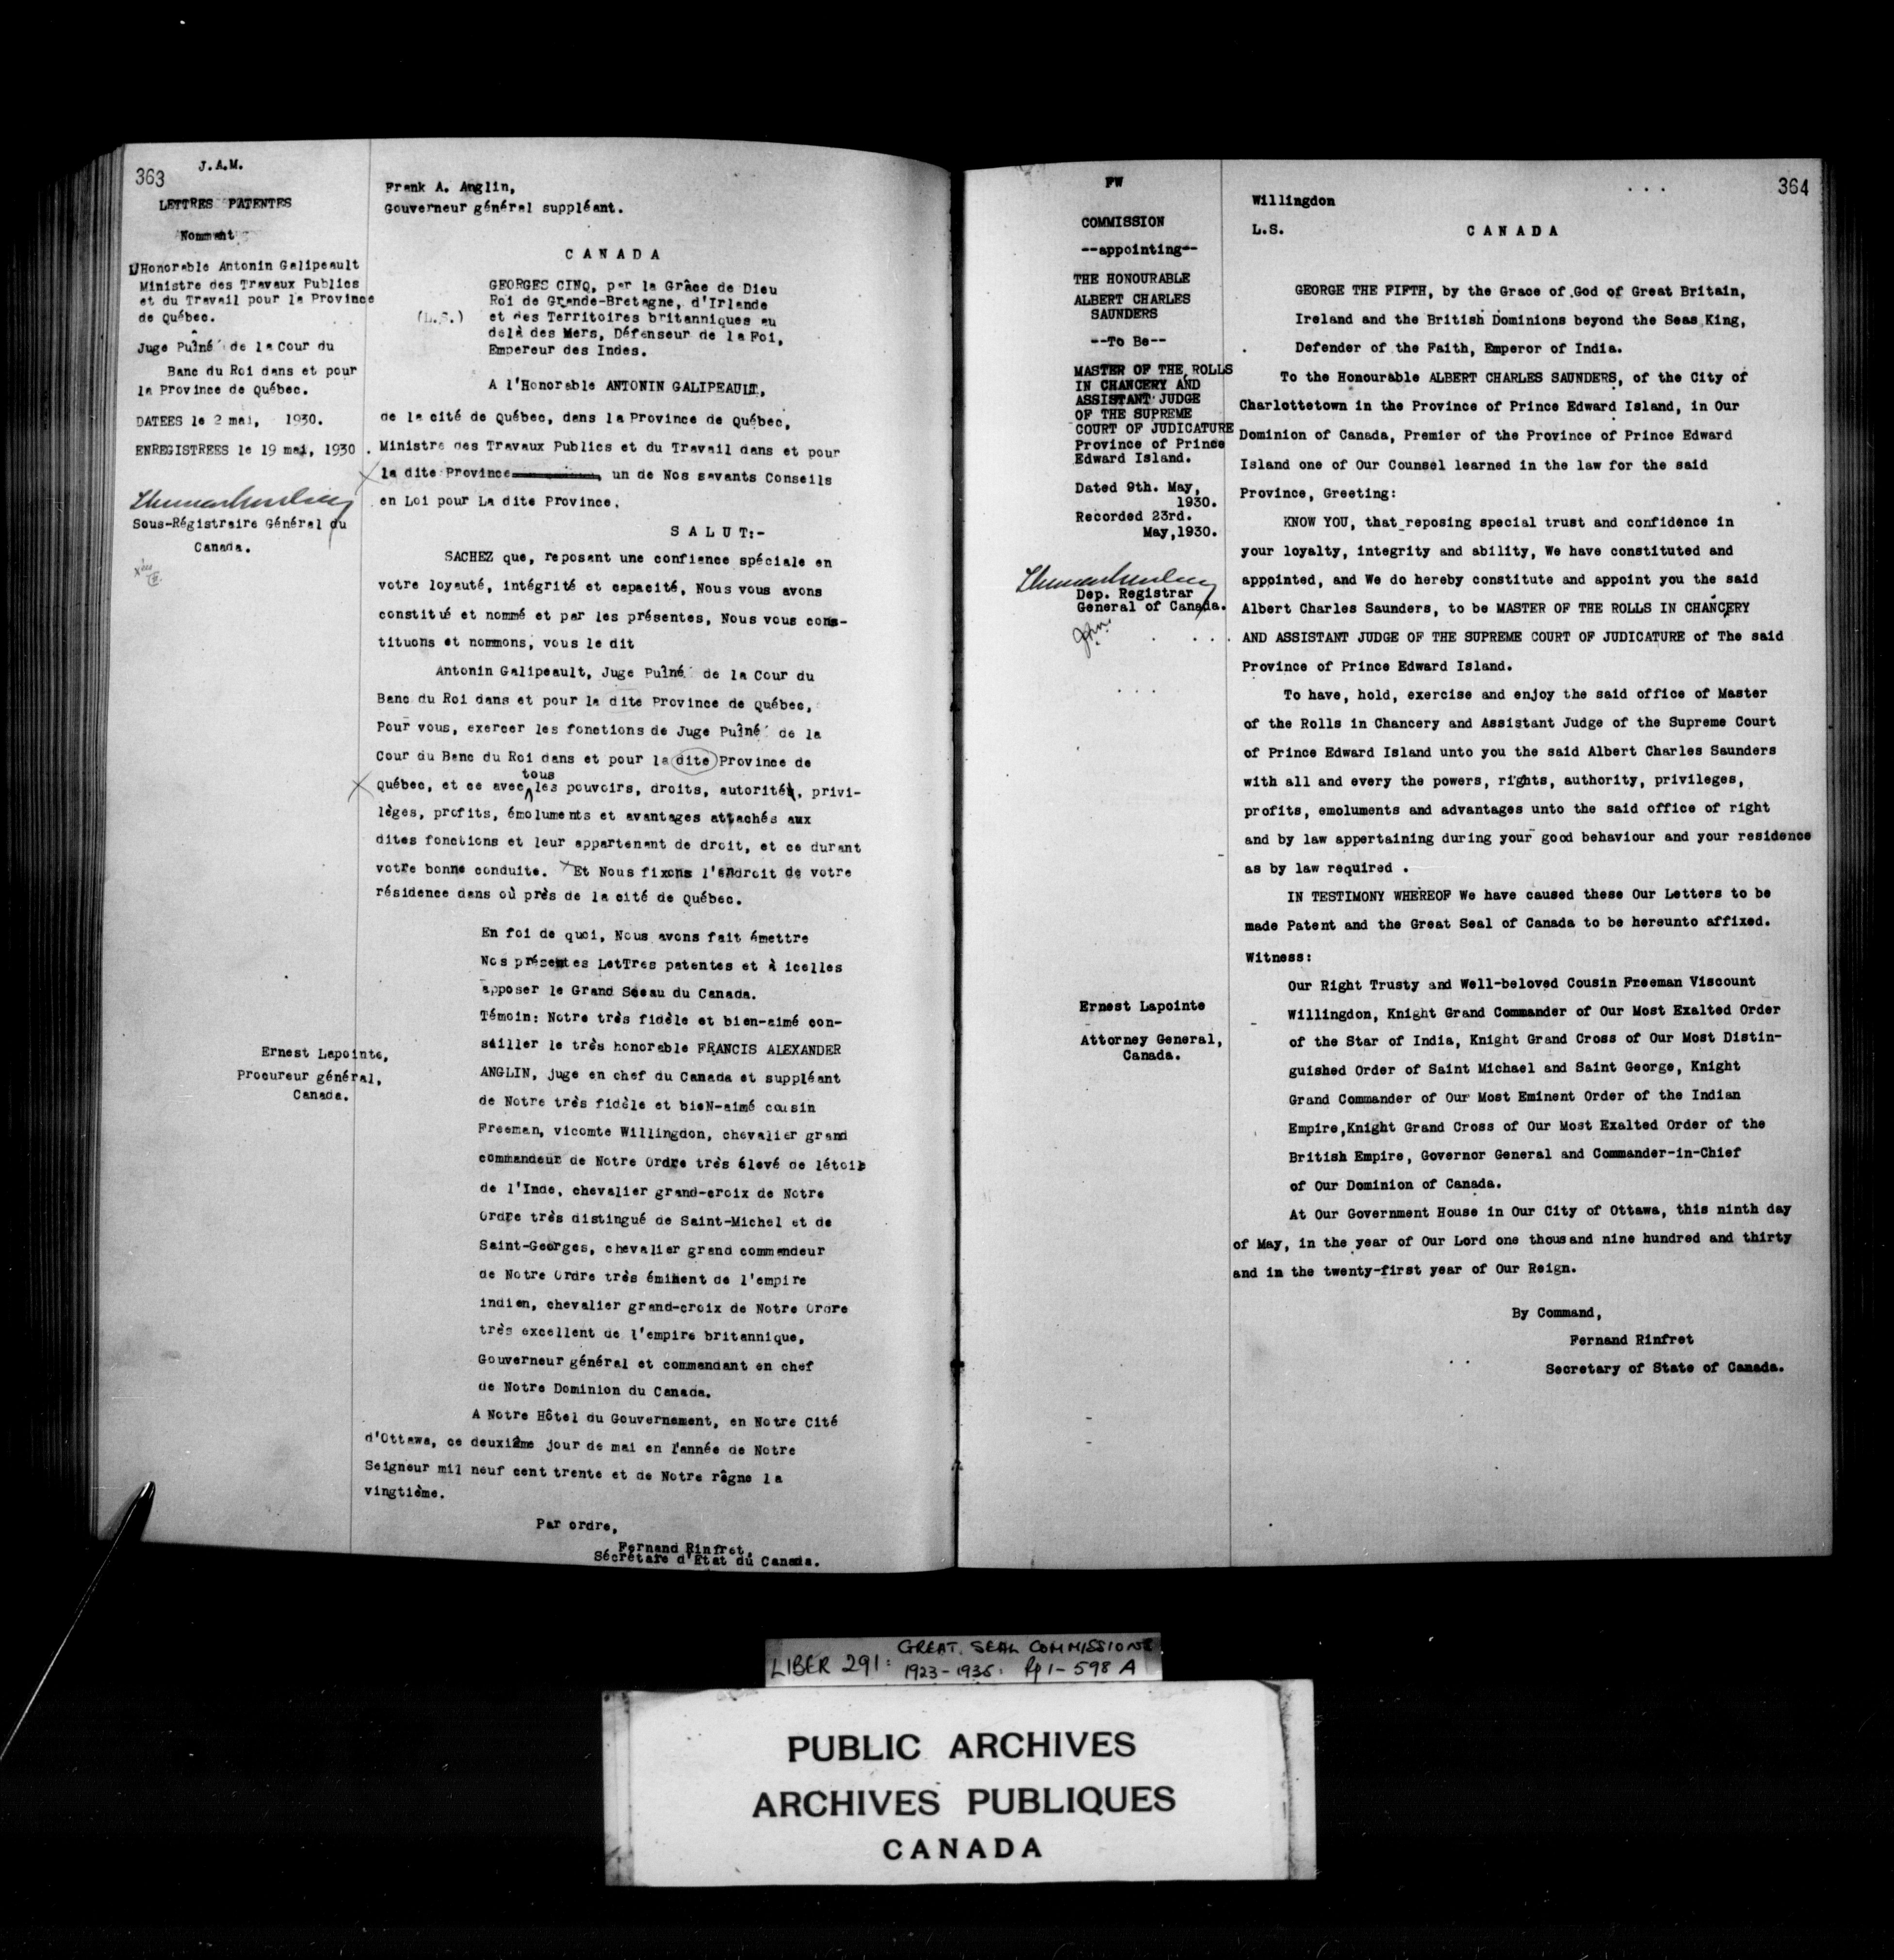 363
J.A.M.
LETTRES PATENTES
Nommant
L'Honorable Antonin Galipeault
Ministre des Travaux Publics
et du Travail pour la Province
de Québec.
Juge Puîné de la Cour du
Banc du Roi dans et pour
la Province de Québec.
DATEES le 2 mai, 1930.
ENREGISTREES le 19 mai, 1930.
Sous-Régistraire Général du
Canada.
Ernest Lapointe,
Procureur général,
Canada.
Frank A. Anglin,
Gouverneur général suppléant.
CANADA
GEORGES CINQ, par la Grâce de Dieu
Roi de Grande-Bretagne, d'Irlande
(L.S.) et des Territoires britanniques au
delà des Mers, Défenseur de la Foi,
Empereur des Indes.
A l'Honorable ANTONIN GALIPEAULT,
de la cité de Québec, dans la Province de Québec,
Ministre des Travaux Publics et du Travail dans et pour
la dite Province, un de Nos savants Conseils
en Loi pour La dite Province.
SALUT:-
SACHEZ que, reposant une confiance spéciale en
votre loyauté, intégrité et capacité, Nous vous avons
constitué et nommé et par les présentes, Nous vous cons-
tituons et nommons, vous le dit
Antonin Galipeault, Juge Puîné de la Cour du
Banc du Roi dans et pour la dite Province de Québec,
Pour vous, exercer les fonctions de Juge Puîné de la
Cour du Banc du Roi dans et pour la dite Province de
Québec, et ce avec tous les pouvoirs, droits, autorités, privi-
lèges, profits, émoluments et avantages attachés aux
dites fonctions et leur appartenant de droit, et ce durant
votre bonne conduite. Et Nous fixons l'endroit de votre
résidence dans où près de la cité de Québec.
En foi de quoi, Nous avons fait émettre
Nos présentes LetTres patentes et à icelles
apposer le Grand Sceau du Canada.
Témoin: Notre très fidèle et bien-aimé con-
seiller le très honorable FRANCIS ALEXANDER
ANGLIN, juge en chef du Canada et suppléant
de Notre très fidèle et bieN-aimé cousin
Freeman, vicomte Willingdon, chevalier grand
commandeur de Notre Ordre très élevé de létoile
de l'Inde, chevalier grand-croix de Notre
Ordre très distingué de Saint-Michel et de
Saint-Georges, chevalier grand commandeur
de Notre Ordre très éminent de l'empire
indien, chevalier grand-croix de Notre Ordre
très excellent de l'empire britannique,
Gouverneur général et commandant en chef
de Notre Dominion du Canada.
A Notre Hôtel du Gouvernement, en Notre Cité
d'Ottawa, ce deuxième jour de mai en l'année de Notre
Seigneur mil neuf cent trente et de Notre règne la
vingtième.
Par ordre,
Fernand Rinfret,
Sécrétaire d'Etat du Canada.
FW
COMMISSION
--appointing--
THE HONOURABLE
ALBERT CHARLES
SAUNDERS
--To Be--
MASTER OF THE ROLLS
IN CHANCERY AND
ASSISTANT JUDGE
OF THE SUPREME
COURT OF JUDICATURE
Province of Prince
Edward Island.
Dated 9th. May,
1930.
Recorded 23rd.
May,1930.
Dep. Registrar
General of Canada.
Ernest Lapointe
Attorney General,
Canada.
364
Willingdon
L.S. CANADA
GEORGE THE FIFTH, by the Grace of God of Great Britain,
Ireland and the British Dominions beyond the Seas King,
Defender of the Faith, Emperor of India.
To the Honourable ALBERT CHARLES SAUNDERS, of the City of
Charlottetown in the Province of Prince Edward Island, in Our
Dominion of Canada, Premier of the Province of Prince Edward
Island one of Our Counsel learned in the law for the said
Province, Greeting:
KNOW YOU, that reposing special trust and confidence in
your loyalty, integrity and ability, We have constituted and
appointed, and We do hereby constitute and appoint you the said
Albert Charles Saunders, to be MASTER OF THE ROLLS IN CHANCERY
AND ASSISTANT JUDGE OF THE SUPREME COURT OF JUDICATURE of The said
Province of Prince Edward Island.
To have, hold, exercise and enjoy the said office of Master
of the Rolls in Chancery and Assistant Judge of the Supreme Court
of Prince Edward Island unto you the said Albert Charles Saunders
with all and every the powers, rights, authority, privileges,
profits, emoluments and advantages unto the said office of right
and by law appertaining during your good behaviour and your residence
as by law required .
IN TESTIMONY WHEREOF We have caused these Our Letters to be
made Patent and the Great Seal of Canada to be hereunto affixed.
Witness:
Our Right Trusty and Well-beloved Cousin Freeman Viscount
Willingdon, Knight Grand Commander of Our Most Exalted Order
of the Star of India, Knight Grand Cross of Our Most Distin-
guished Order of Saint Michael and Saint George, Knight
Grand Commander of Our Most Eminent Order of the Indian
Empire,Knight Grand Cross of Our Most Exalted Order of the
British Empire, Governor General and Commander-in-Chief
of Our Dominion of Canada.
At Our Government House in Our City of Ottawa, this ninth day
of May, in the year of Our Lord one thousand nine hundred and thirty
and in the twenty-first year of Our Reign.
By Command,
Fernand Rinfret
Secretary of State of Canada.
LIBER 291: GREAT SEAL COMMISSIONS
1923-1935. Pp 1-598 A
PUBLIC ARCHIVES
ARCHIVES PUBLIQUES
CANADA